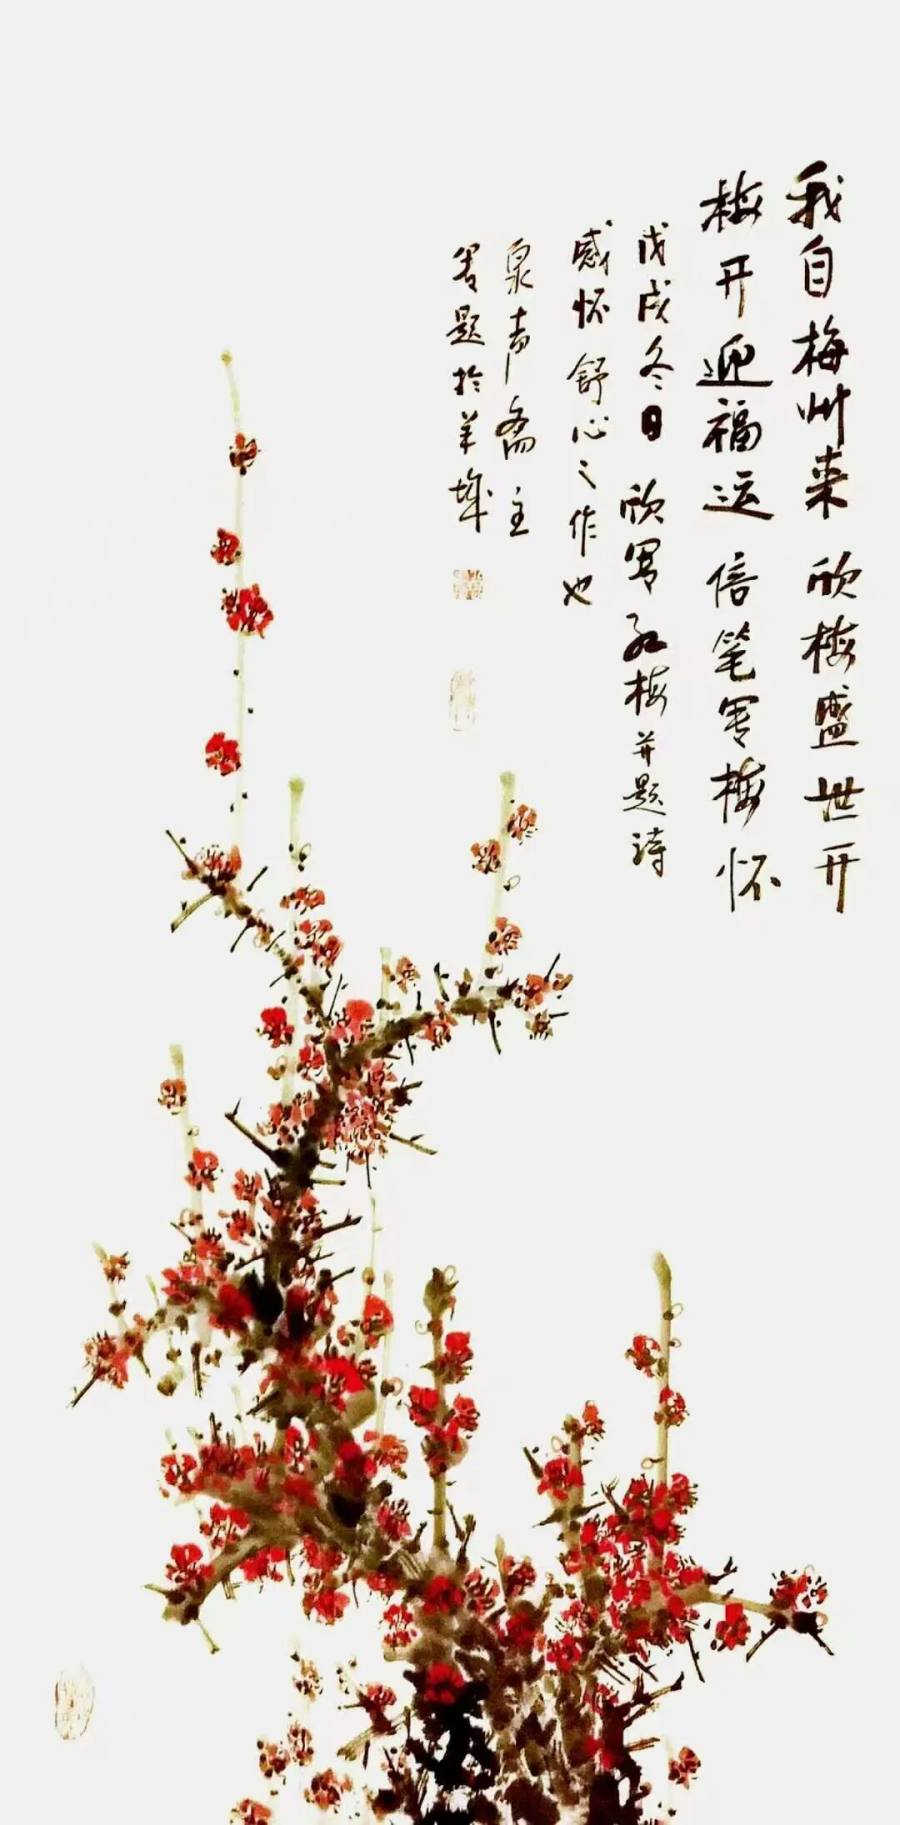 我自梅州来 欣梅盛世开
梅开迎福运 信笔写梅怀
戊戌冬日 欣写红梅并题诗
感怀舒心之作也
泉声斋主
署题于羊城